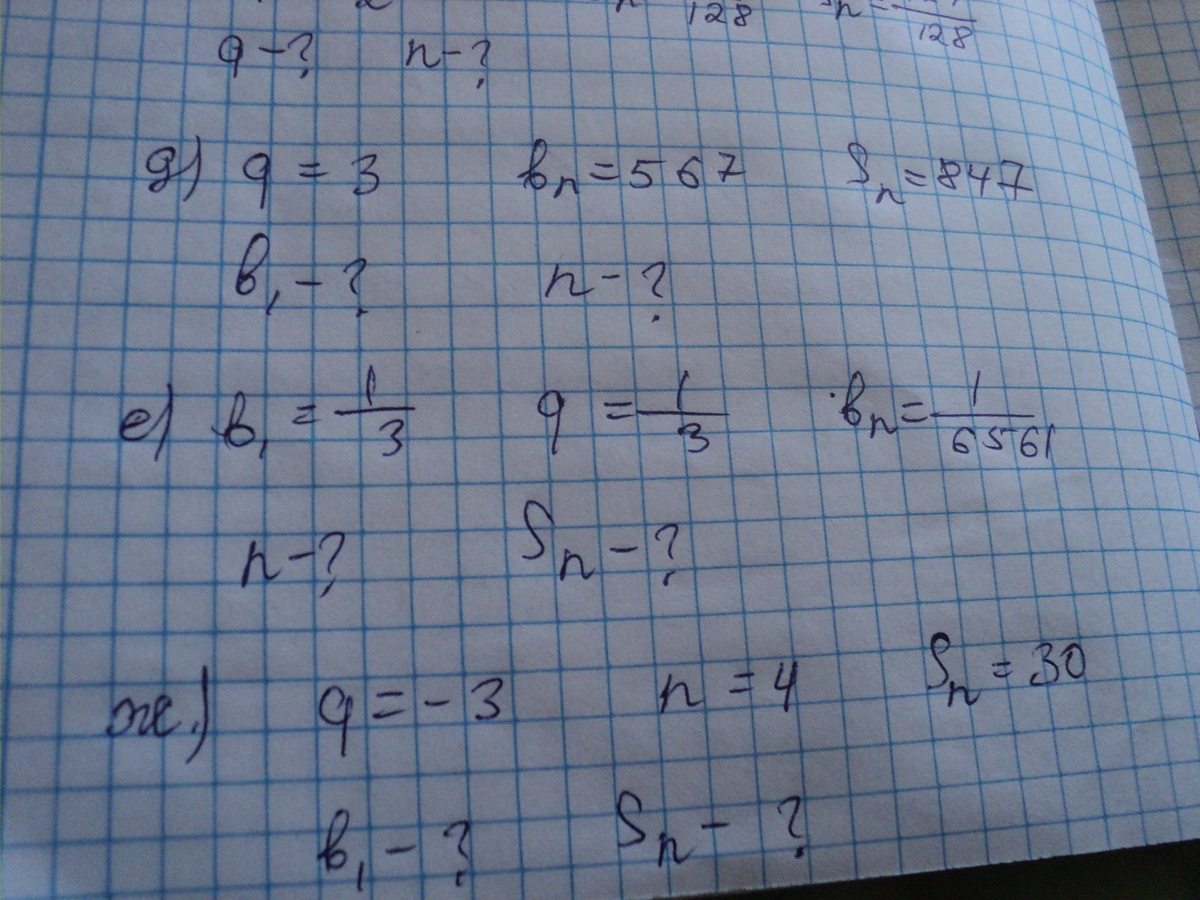 128 128
q - ? n - ?
д) q = 3 bₙ = 567 Sₙ = 847
b₁ - ? n - ?
е) b₁ = 1/3 q = 1/3 bₙ = 1/6561
n - ? Sₙ - ?
ж.) q = - 3 n = 4 Sₙ = 30
b₁ - ? Sₙ - ?